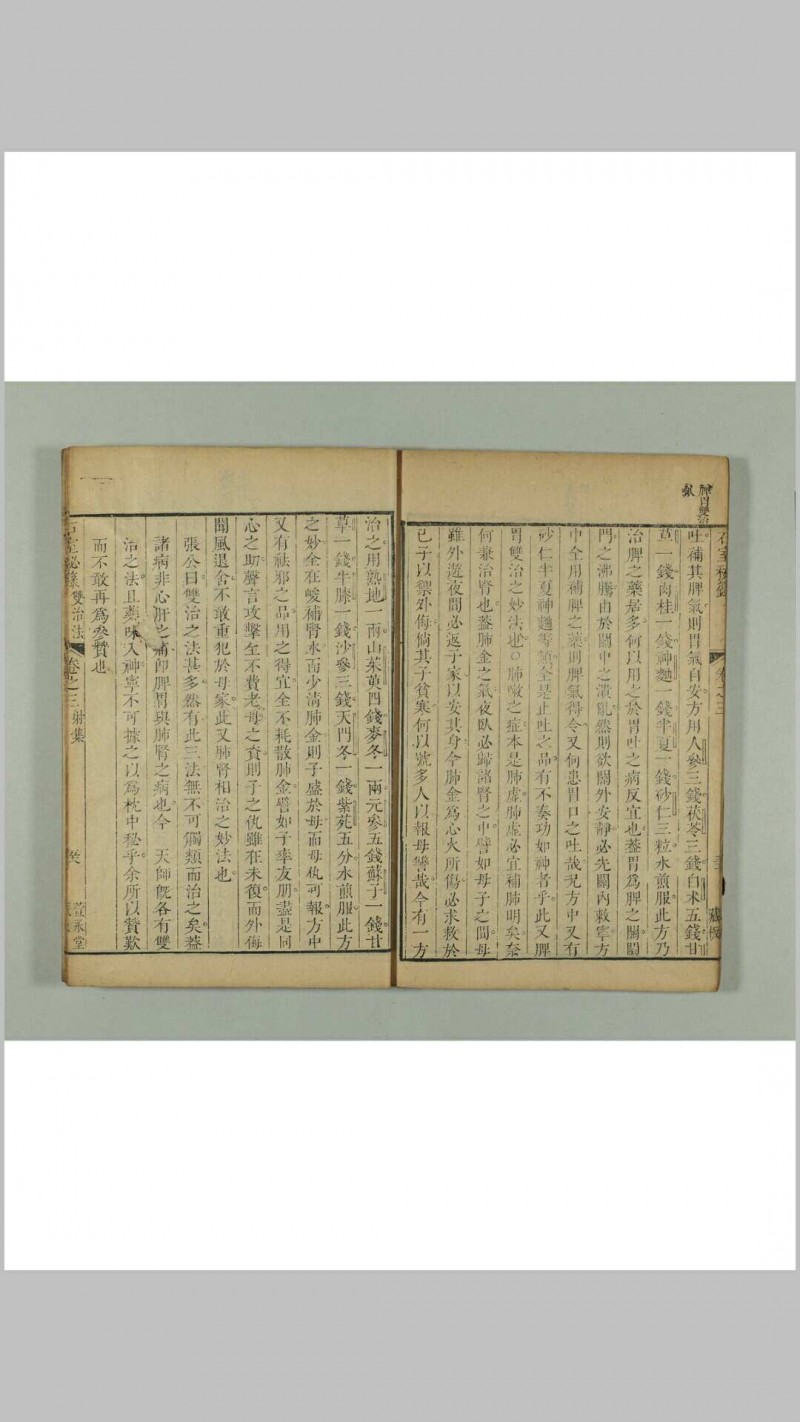 肺腎雙治
吐補其脾氣則胃氣自安方用人參三錢茯苓三錢白朮五錢甘
草一錢肉桂一錢神麯一錢半夏一錢砂仁三粒水煎服此方乃
治脾之藥居多何以用之於胃吐之病反宜也蓋胃爲脾之關關
門之沸騰由於關中之潰亂然則欲關外安靜必先關內敉寧方
中全用補脾之藥則脾氣得令又何患胃口之吐哉况方中又有
砂仁半夏神麯等類全是止吐之品有不奏功如神者乎此又脾
胃雙治之妙法也○肺嗽之症本是肺虛肺虛必宜補肺明矣奈
何兼治腎也蓋肺金之氣夜臥必歸諸腎之中譬如母子之間母
雖外遊夜間必返于家以安其身今肺金爲心火所傷必求救於
己子以禦外侮倘其子貧寒何以號多人以報母讐哉今有一方
治之用熟地一兩山茱萸四錢麥冬一兩元參五錢蘇子一錢甘
草一錢牛膝一錢沙參三錢天門冬一錢紫菀五分水煎服此方
之妙全在峻補腎水而少清肺金則子盛於母而母仇可報方中
又有祛邪之品用之得宜全不耗散肺金譬如子率友朋盡是同
心之助聲言攻擊全不費老母之資則子之仇雖在未復而外侮
聞風退舍不敢重犯於母家此又肺腎相治之妙法也
張公曰雙治之法甚多然有此三法無不可觸類而治之矣蓋
諸病非心肝之痛卽脾胃與肺腎之病也今 天師旣各有雙
治之法且藥味入神寧不可據之以爲枕中秘乎余所以贊歎
而不敢再爲參贊也
石室秘籙 雙治法 卷之三 射集 萱永堂